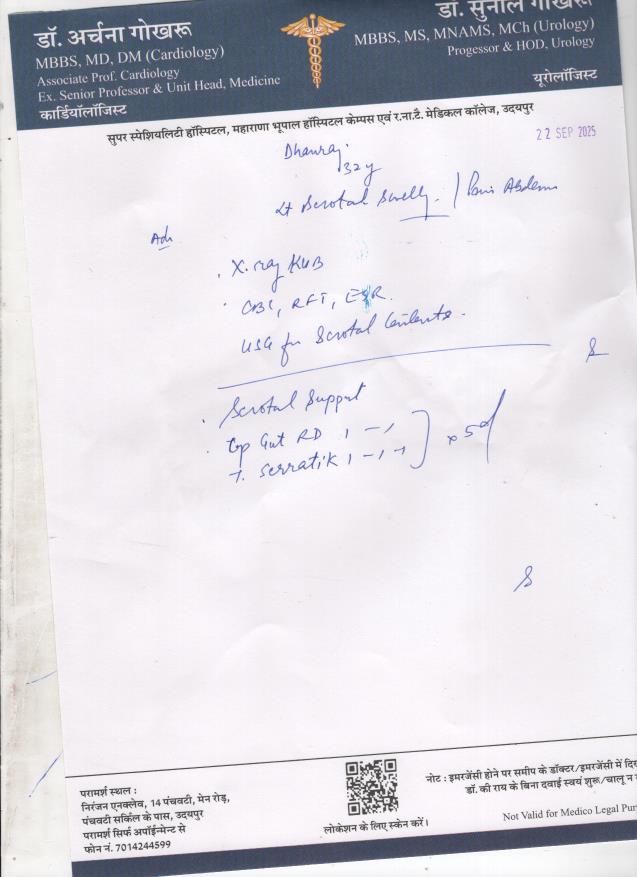 डॉ. अर्चना गोखरू
MBBS, MD, DM (Cardiology)
Associate Prof. Cardiology
Ex. Senior Professor & Unit Head, Medicine
कार्डियॉलॉजिस्ट
डॉ. सुनील गोखरू
MBBS, MS, MNAMS, MCh (Urology)
Progessor & HOD, Urology
यूरोलॉजिस्ट
सुपर स्पेशियलिटी हॉस्पिटल, महाराणा भूपाल हॉस्पिटल केम्पस एवं र.ना.टै. मेडिकल कॉलेज, उदयपुर
22 SEP 2025
Dhanraj
32y
Lt Scrotal Swelly. / Pain Abdomen
Adv
. X.ray KUB
. CBC, RFT, ESR.
USG for Scrotal Contents.
. Scrotal Support
. Cap Gut RD 1 - 1
T. Serratik 1 - 1 - 1
x 5d
परामर्श स्थल :
निरंजन एनक्लेव, 14 पंचवटी, मेन रोड़,
पंचवटी सर्किल के पास, उदयपुर
परामर्श सिर्फ अपॉईन्मेन्ट से
फोन नं. 7014244599
लोकेशन के लिए स्केन करें।
नोट : इमरजेंसी होने पर समीप के डॉक्टर/इमरजेंसी में
डॉ. की राय के बिना दवाई स्वयं शुरू/चालू न
Not Valid for Medico Legal